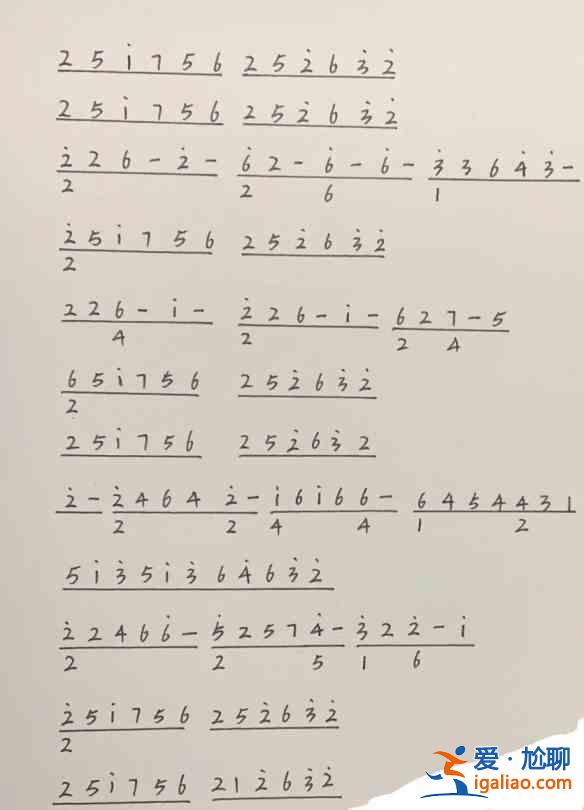 2 5 i̇ 7 5 6 2 5 2̇ 6 3̇ 2̇
2 5 i̇ 7 5 6 2 5 2̇ 6 3̇ 2̇
2̇ 2 6 - 2̇ - 6̇ 2 - 6̇ - 6̇ - 3̇ 3 6 4̇ 3̇ -
2 2 6 1
2̇ 5 i̇ 7 5 6 2 5 2̇ 6 3̇ 2̇
2
2 2 6 - i̇ - 2̇ 2 6 - i - 6 2 7 - 5
4 2 2 4
6 5 i̇ 7 5 6 2 5 2̇ 6 3̇ 2̇
2
2 5 i̇ 7 5 6 2 5 2̇ 6 3̇ 2
2̇ - 2̇ 4 6 4 2̇ - i 6 i 6 6 - 6 4 5 4 4 3 1
2 2 4 4 1 2
5 i̇ 3̇ 5 i̇ 3̇ 6 4̇ 6 3̇ 2̇
2̇ 2 4 6 6̇ - 5̇ 2 5 7 4̇ - 3̇ 2 2̇ - i̇
2 2 5 1 6
2̇ 5 i̇ 7 5 6 2 5 2̇ 6 3̇ 2̇
2
2 5 i̇ 7 5 6 2 1 2̇ 6 3̇ 2̇
爱·尬聊
igaliao.com